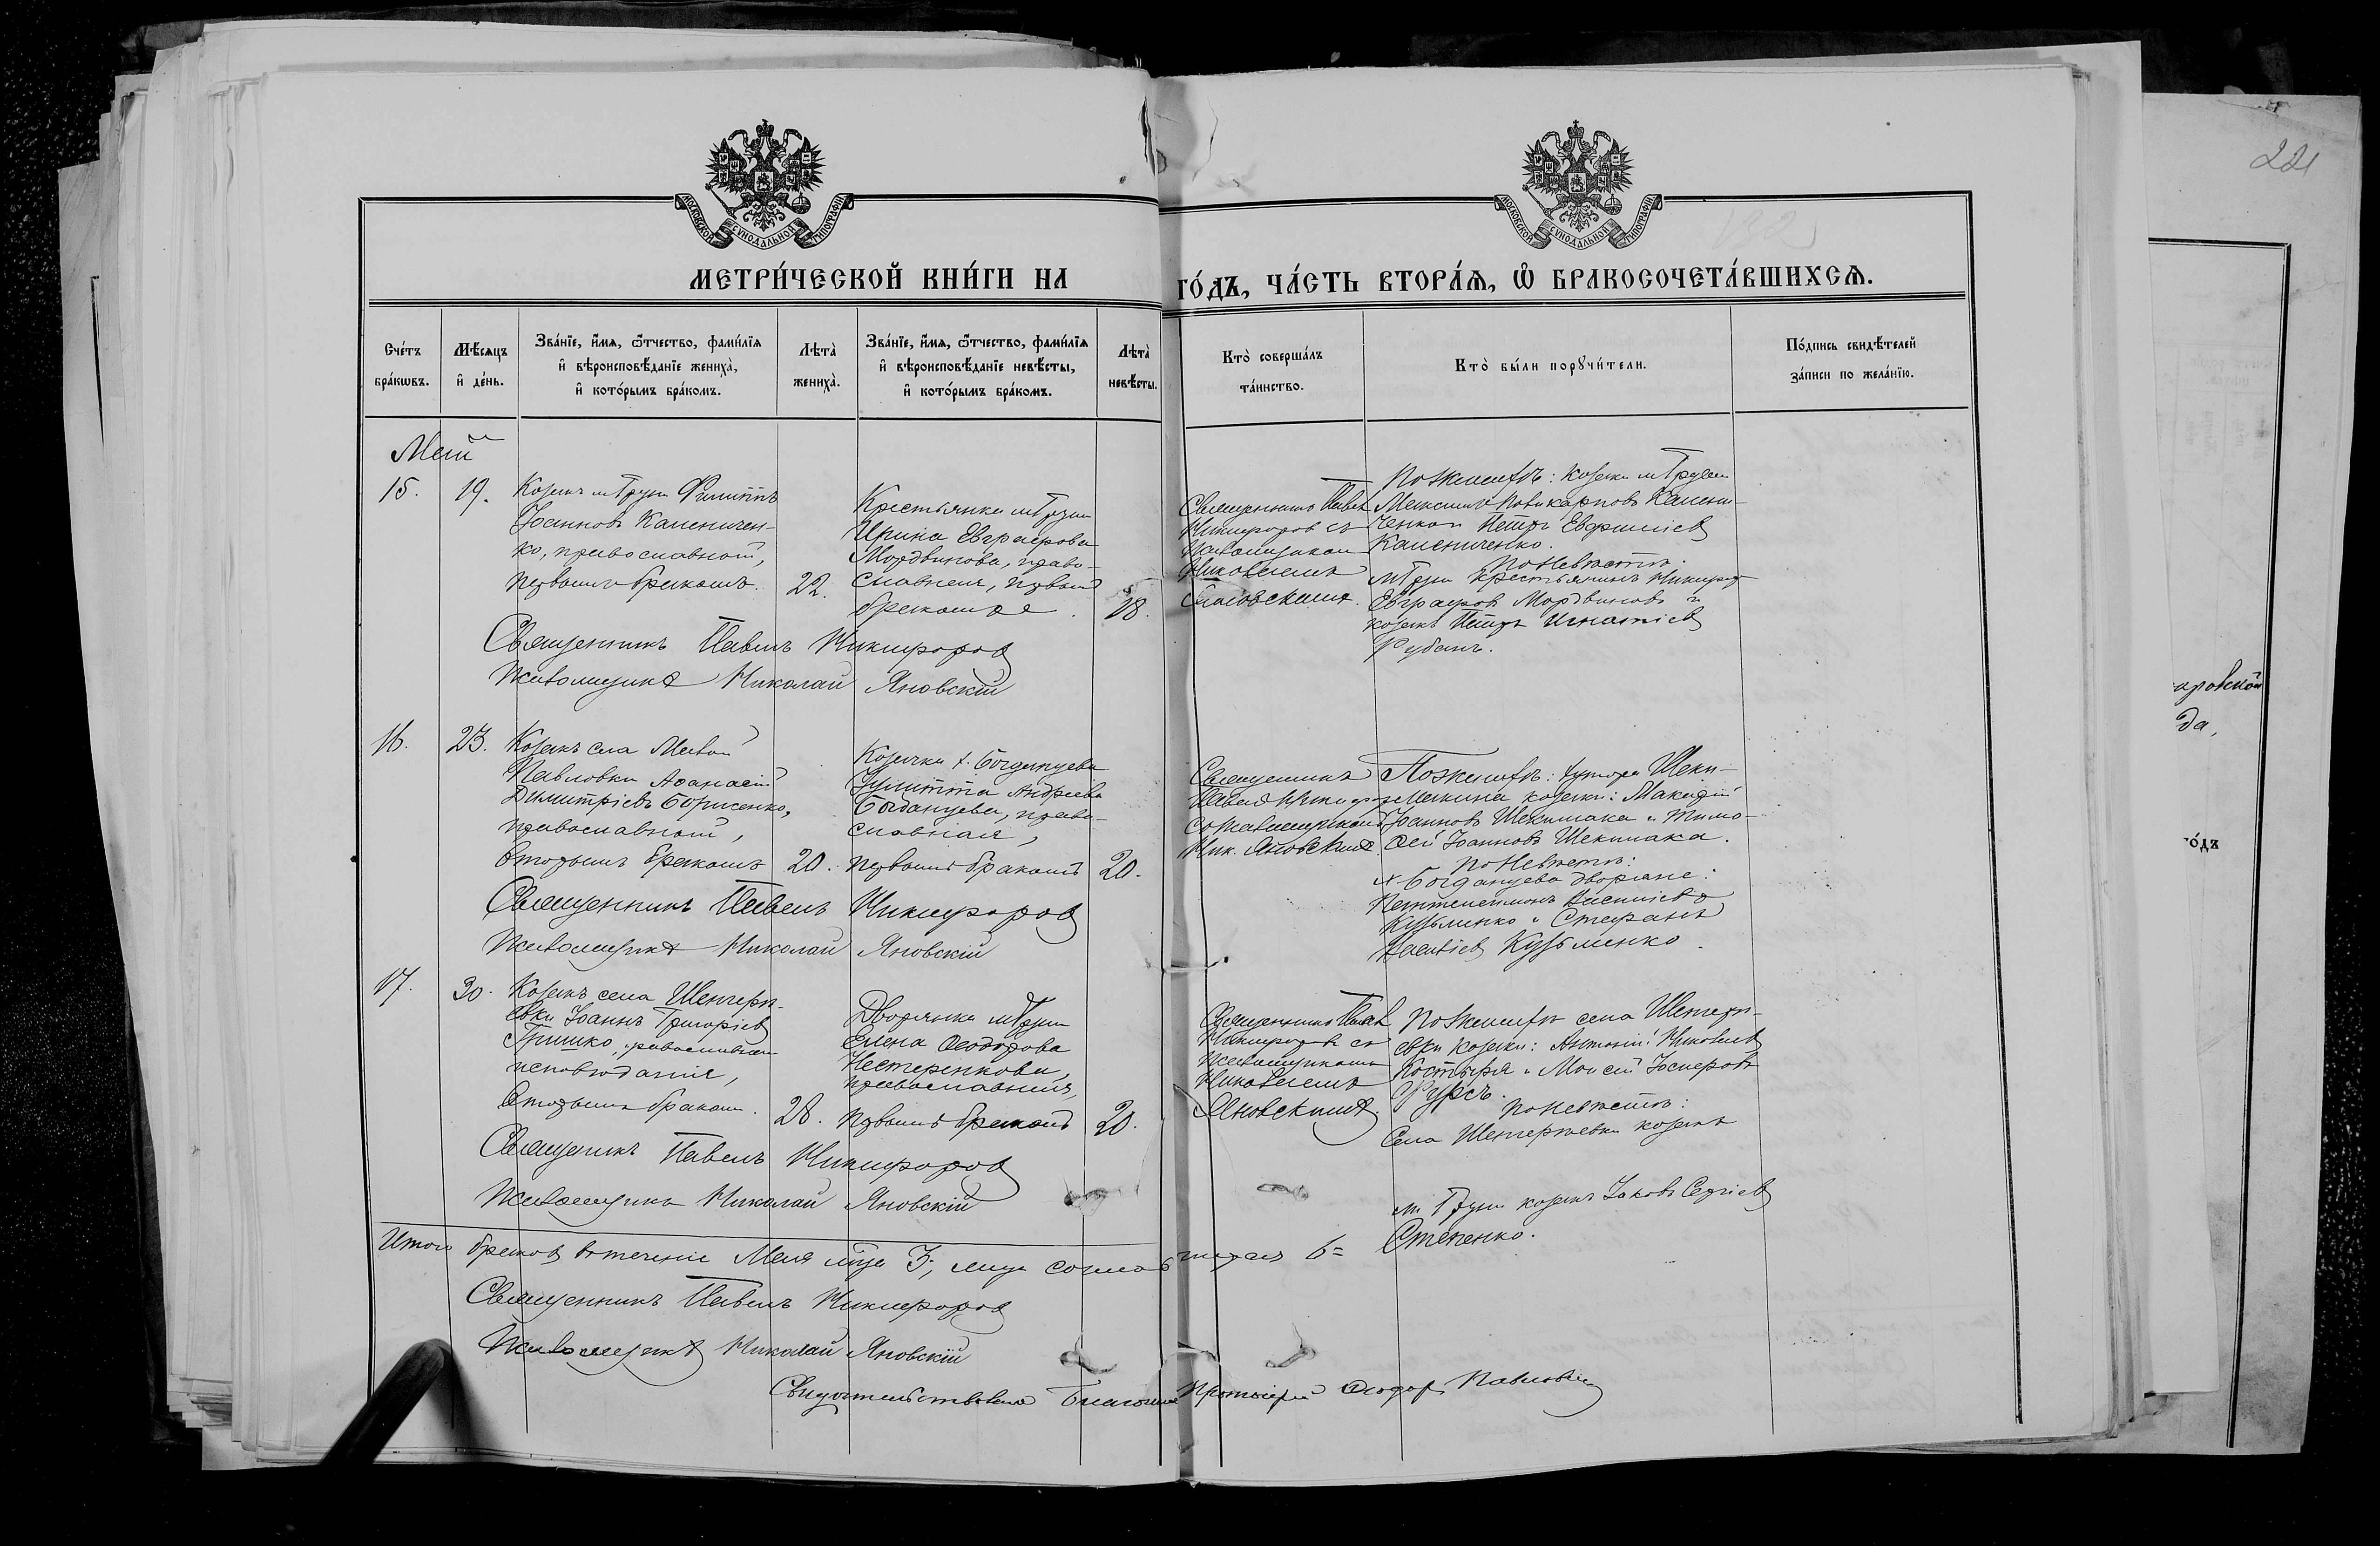 221
132
МОСКОВСКОЙ СѴНОДАЛЬНОЙ ТИПОГРАФІИ
МОСКОВСКОЙ СѴНОДАЛЬНОЙ ТИПОГРАФІИ
МЕТРИ́ЧЕСКОЙ КНИ́ГИ НА
ГО́ДЪ, ЧА́СТЬ ВТОРА́Ѧ, Ѡ҆ БРАКОСОЧЕТА́ВШИХСѦ.
Счéтъ
брáкѡвъ.
Мѣ́сѧцъ
и҆ дéнь.
Звáнїе, и҆́мѧ, ѻ҆́тчество, фамѝлїѧ
и҆ вѣроисповѣ́данїе женихà,
и҆ котóрымъ брáкомъ.
Лѣтà
женихà.
Звáнїе, и҆́мѧ, ѻ҆́тчество, фамѝлїѧ
и҆ вѣроисповѣ́данїе невѣ́сты,
и҆ котóрымъ брáкомъ.
Лѣтà
невѣ́сты.
Ктò совершáлъ
тáинство.
Ктò бы́ли порꙋчи́тели.
Пóдпись свидѣ́телей
зáписи по желáнїю.
Май
15.
19.
Козакъ м Груни Филиппъ
Іоанновъ Каленичен-
ко, православной,
первымъ бракомъ.
22.
Крестьянка м Груни
Ирина Евграфова
Мордвинова, право-
славная, первымъ
бракомъ.
18.
Священникъ Павелъ
Никифоровъ съ
псаломщикомъ
Николаемъ
Яновскимъ.
По женихѣ: козаки м Груни
Максимъ Поликарповъ Калени-
ченко и Петръ Евфиміевъ
Каленниченко.
По невѣстѣ:
м Груни крестьянинъ Никифоръ
Евграфовъ Мордвиновъ и
козакъ Петръ Игнатіевъ
Рубанъ.
Священникъ Павелъ Никифоровъ
Псаломщикъ Николай Яновскій
16.
23.
Козакъ села Малой
Павловки Аѳанасій
Димитріевъ Борисенко,
православной,
вторымъ бракомъ
20.
Козачка х. Богданцева
Іулитта Андреева
Богданцева, право-
славная,
первымъ бракомъ
20.
Священникъ
Павелъ Никифоровъ
съ псаломщикомъ
Ник. Яновскимъ.
По женихѣ: хутора Шеки-
Макина козаки: Макарій
Іоанновъ Шекимака и Тимо-
ѳей Іоанновъ Шекимака.
По невѣстѣ:
х. Богданцева дворяне:
Пантелеимонъ Васильевъ
Кузьменко и Стефанъ
Кузьменко.
Священникъ Павелъ Никифоровъ
Псаломщикъ Николай Яновскій
17.
30.
Козакъ села
Іоаннъ Григоріевъ
Гришко, православнаго
исповѣданія,
вторымъ бракомъ.
28.
Дворянка м Груни
Елена Ѳеодорова
Нестеренкова,
православная,
первымъ бракомъ
20.
Священникъ Павелъ
Никифоровъ съ
псаломщикомъ
Николаемъ
Яновскимъ.
По женихѣ села
козаки: Антоній Николаевъ
Костыря и Моисей Іосифовъ
Фурсъ.
По невѣстѣ:
Села козакъ
м. Груни козакъ Іаковъ Сергіевъ
Степенко.
Священникъ Павелъ Никифоровъ
Псаломщикъ Николай Яновскій
Итого браковъ въ теченіе Мая мца 3, лицъ сочетавшихся 6=
Священникъ Павелъ Никифоровъ
Псаломщикъ Николай Яновскій
Свидѣтельствовалъ Благочинный Протоіерей Ѳеодоръ Павловичъ
да,
го́дъ